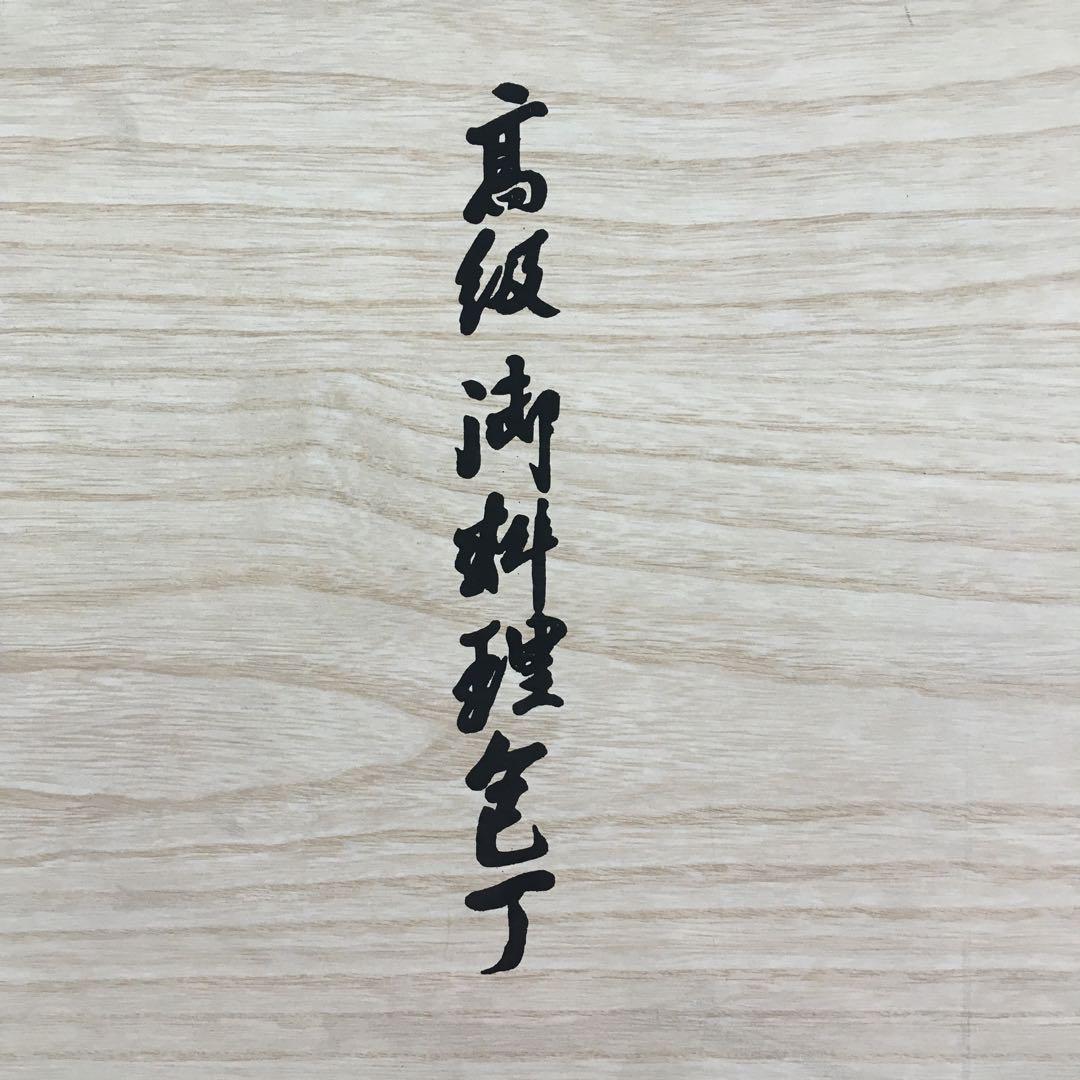 高級 御料理包丁